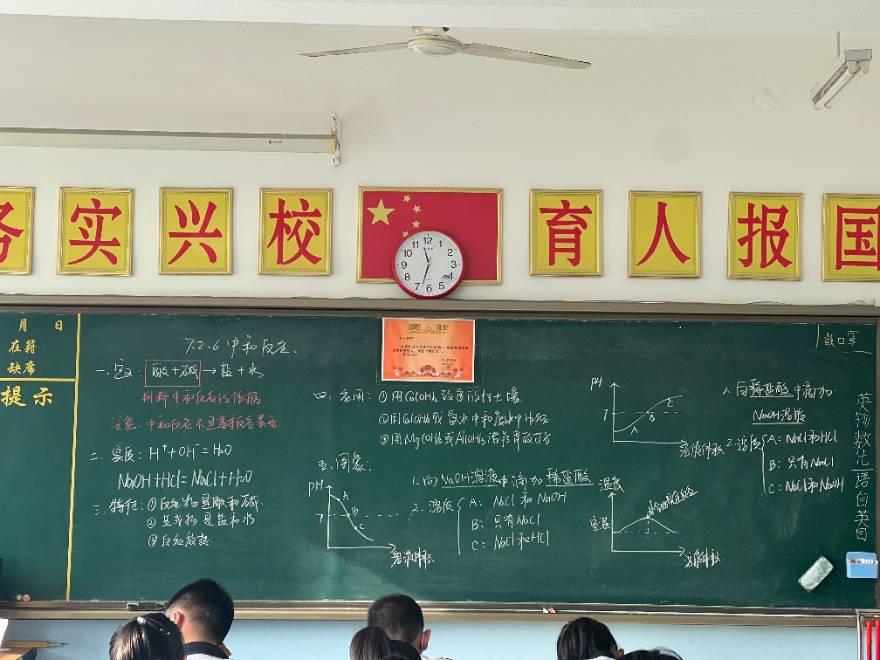 务实兴校
育人报国
12
月 日
在籍
缺席
提示
奖状
7.2.6 中和反应、
一、定义: 酸+碱→盐+水
判断中和反应的依据
注意: 中和反应不是基本反应类型
二、实质: H⁺+OH⁻=H₂O
NaOH+HCl=NaCl+H₂O
三、特征: ①反应物是酸和碱.
②生成物是盐和水
③反应放热
四、应用: ①用Ca(OH)₂改良酸性土壤
②用Ca(OH)₂或氨水中和废水中H₂SO₄
③用Mg(OH)₂或Al(OH)₃
五、图象:
PH
7
A
B
C
溶液体积
1.向NaOH溶液中滴加稀盐酸
2.溶质
A: NaCl和NaOH
B: 只有NaCl
C: NaCl和HCl
PH
7
A
B
C
溶液体积
1.向稀盐酸中滴加
NaOH溶液
2.溶质
A: NaCl和HCl
B: 只有NaCl
C: NaCl和NaOH
温度
室温
溶液体积
戴口罩
英物数化语自英自